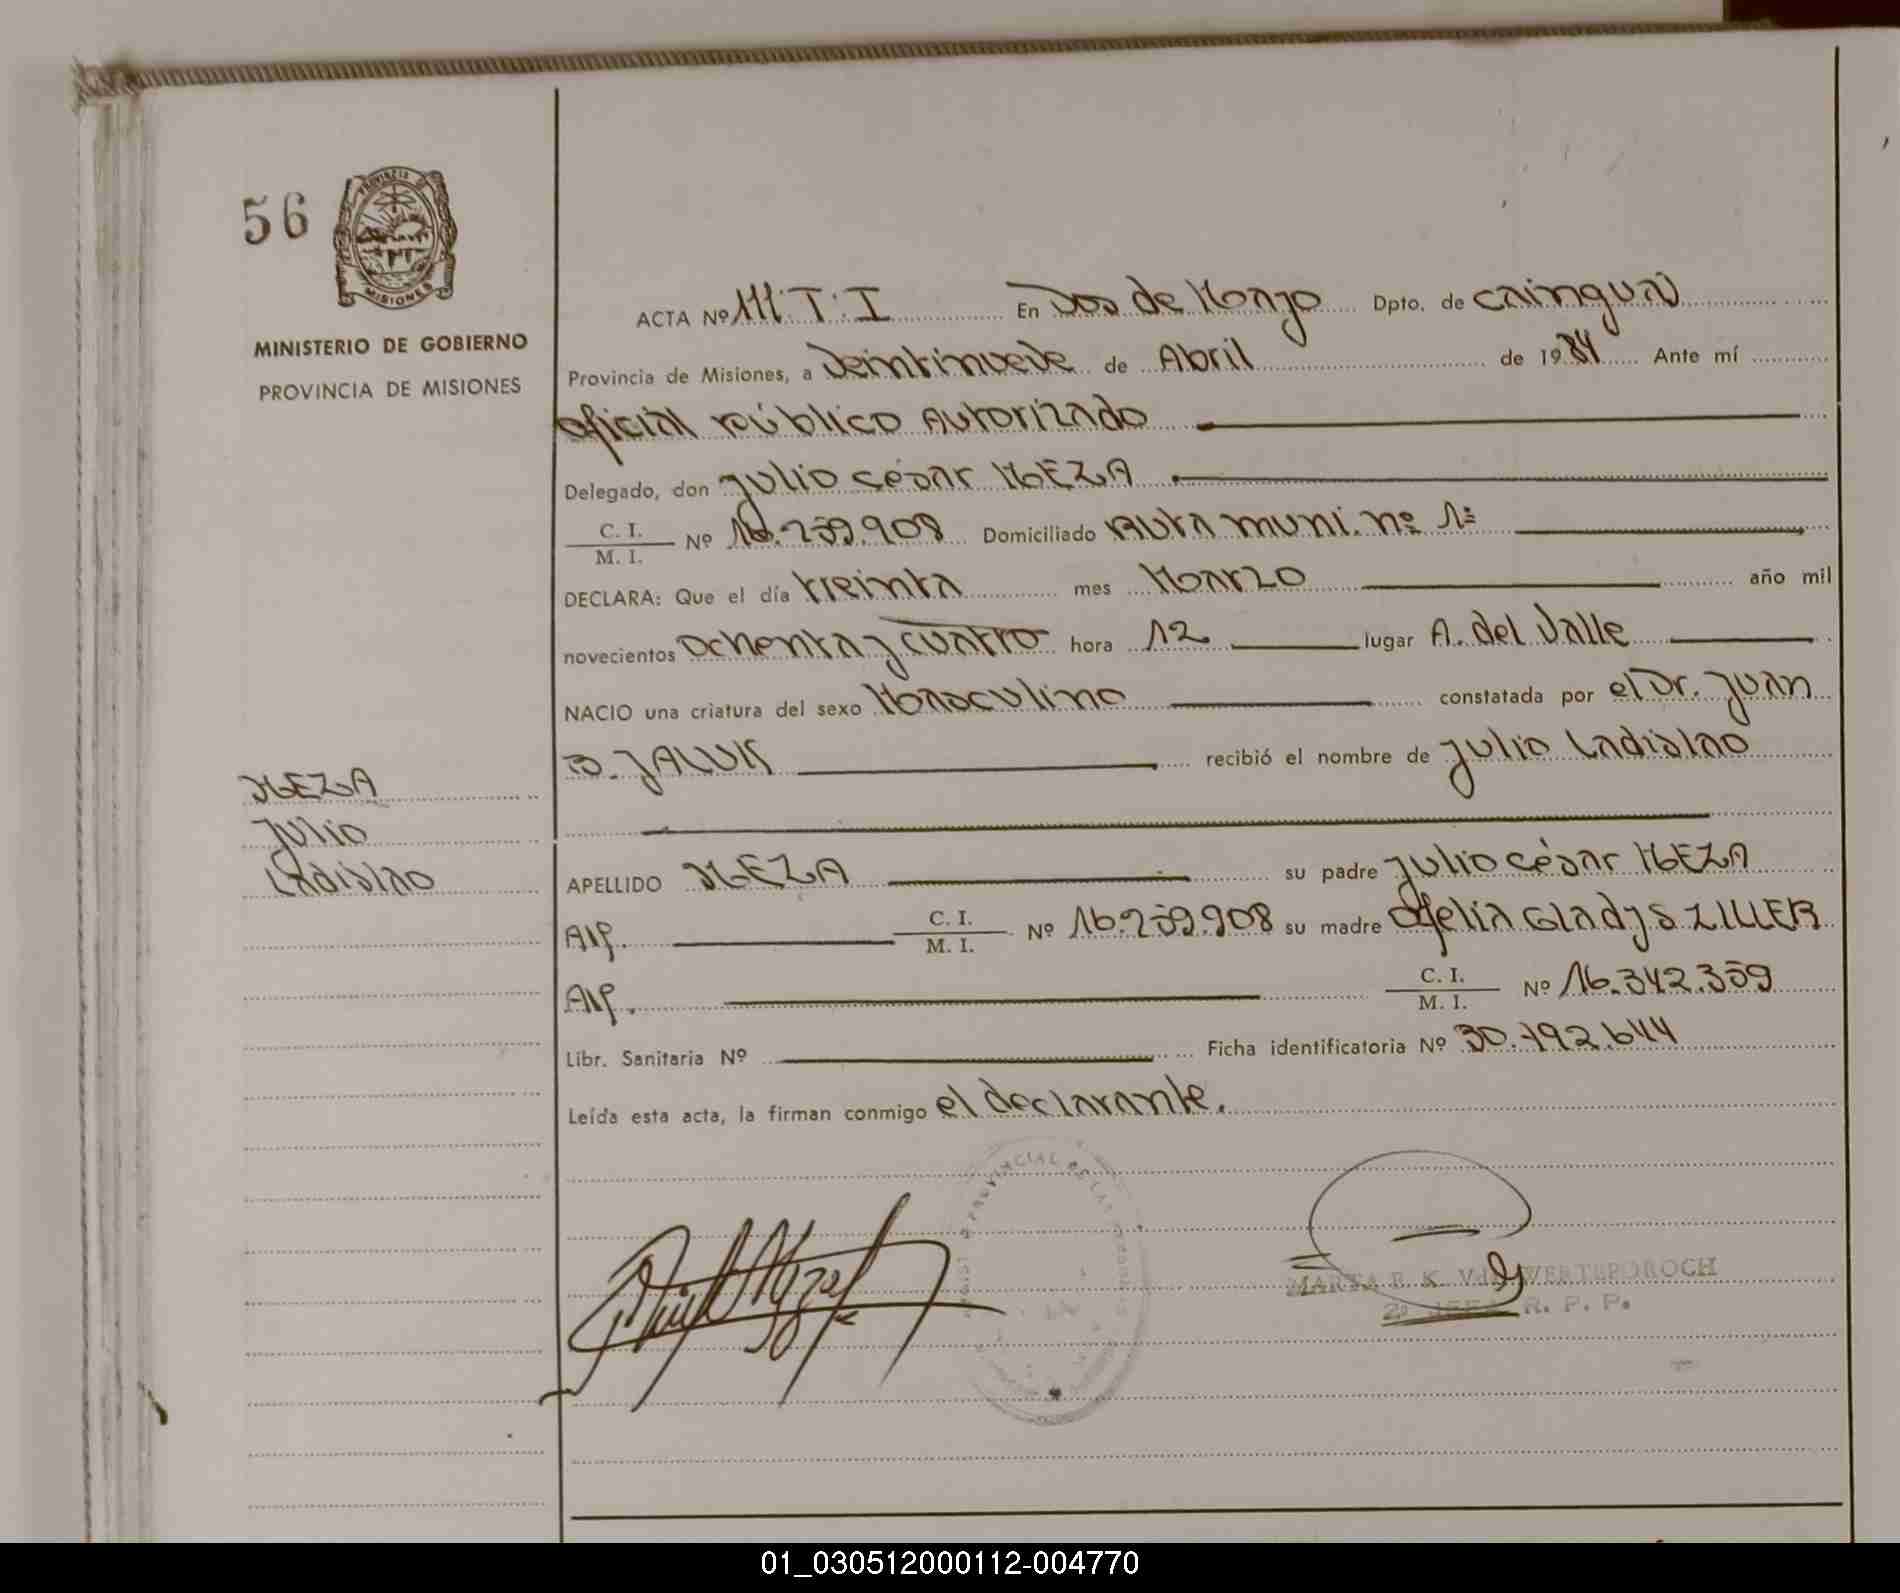 56
PROVINCIA DE
MISIONES
MINISTERIO DE GOBIERNO
PROVINCIA DE MISIONES
ACTA Nº 111.T.I En Dos de Mayo Dpto. de Cainguas
Provincia de Misiones, a Veintinueve de Abril de 1984 Ante mí
Oficial público Autorizado
Delegado, don Julio César MEZA
C. I.
M. I. Nº 16.259.908 Domiciliado Ruta muni. nº 1º
DECLARA: Que el día treinta mes Marzo año mil
novecientos Ochenta y cuatro hora 12 lugar A. del Valle
NACIO una criatura del sexo Masculino constatada por el Dr. Juan
recibió el nombre de Julio Ladislao
MEZA
Julio
Ladislao
APELLIDO MEZA su padre Julio César MEZA
C. I.
M. I. Nº 16.259.908 su madre Ofelia Gladys ZILLER
C. I.
M. I. Nº 16.342.359
Libr. Sanitaria Nº Ficha identificatoria Nº 30.792.644
Leída esta acta, la firman conmigo el declarante.
PROVINCIAL DE LAS PERSONAS
MARTA E. K. Vda. WERTEPOROCH
2º JEFA R. P. P.
01_030512000112-004770